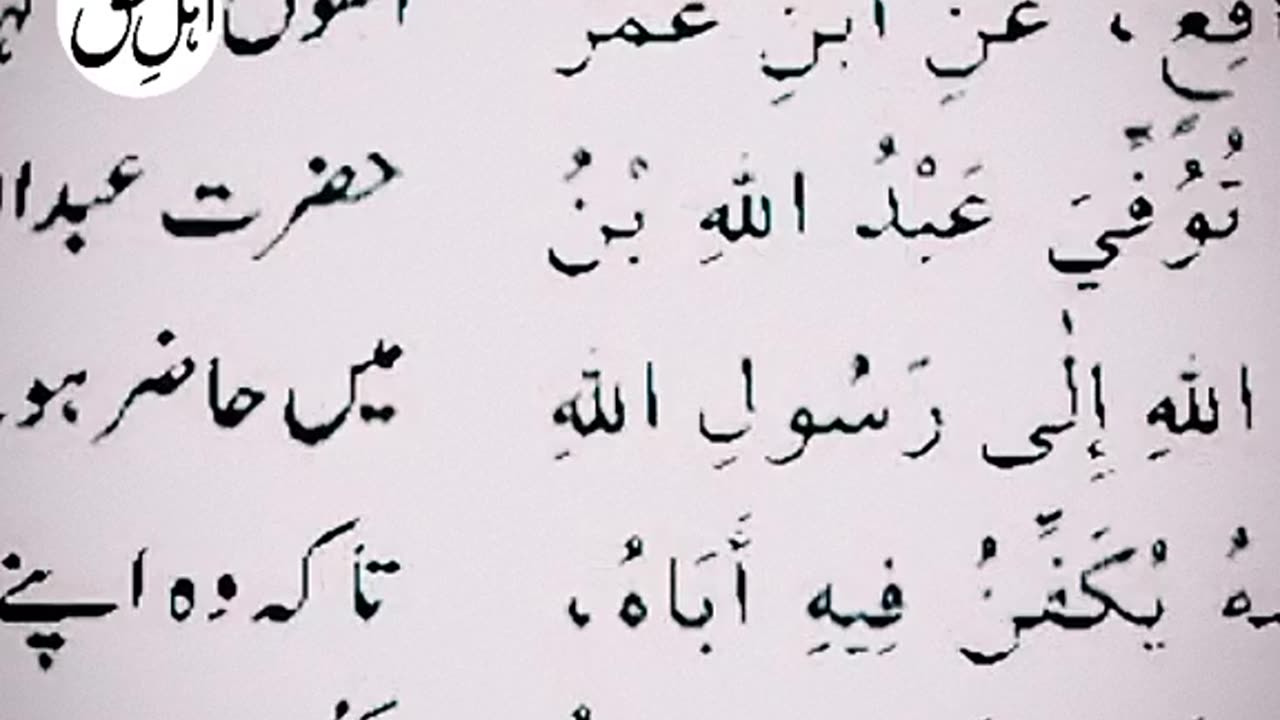 افِعٍ، عَنِ ابْنِ عُمَرَ
تُوُفِّيَ عَبْدُ اللّٰهِ بْنُ
اللّٰهِ إِلٰى رَسُولِ اللّٰهِ
هُ يُكَفِّنُ فِيهِ أَبَاهُ،
حضرت عبدا
میں حاضر ہو
تاکہ وہ اپنے
اہلِ حق